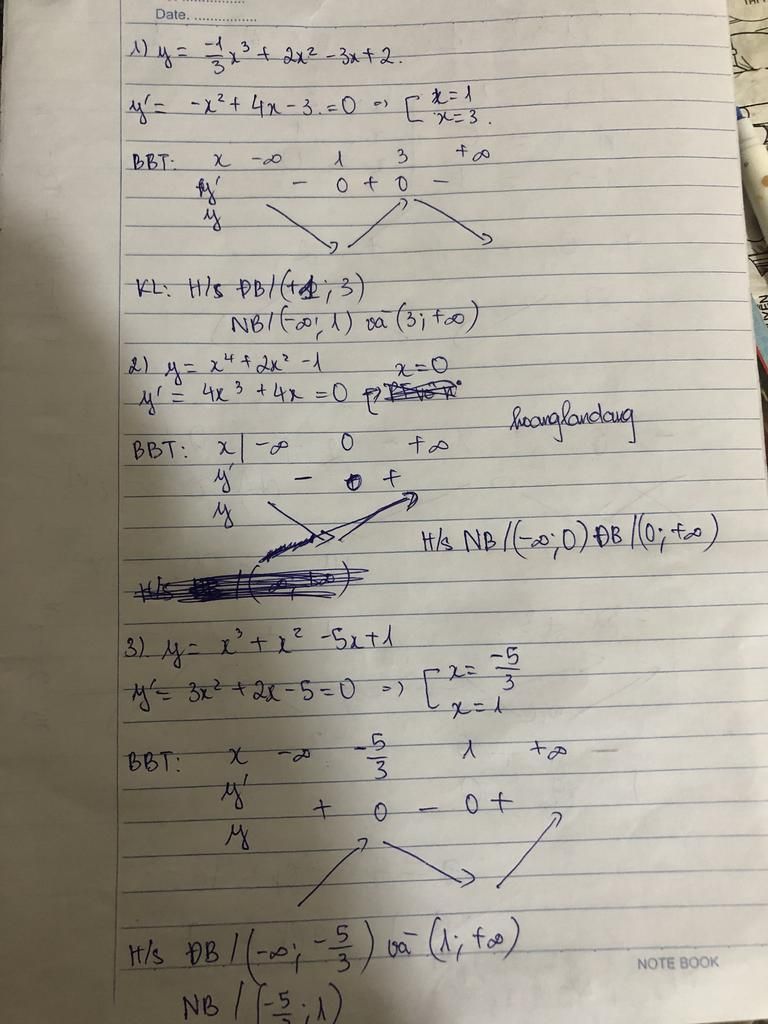 Date. ................
1) y = -1/3 x³ + 2x² - 3x + 2.
y' = -x² + 4x - 3. = 0 => [ x = 1
x = 3.
BBT: x -∞ 1 3 +∞
y' - 0 + 0 -
y
KL: H/s ĐB/(1; 3)
NB/(-∞; 1) và (3; +∞)
2) y = x⁴ + 2x² - 1
y' = 4x³ + 4x = 0 => x = 0
hoanglandang
BBT: x | -∞ 0 +∞
y' - 0 +
y
H/s NB/(-∞; 0) ĐB/(0; +∞)
3) y = x³ + x² - 5x + 1
y' = 3x² + 2x - 5 = 0 => [ x = -5/3
x = 1
BBT: x -∞ -5/3 1 +∞
y' + 0 - 0 +
y
H/s ĐB/(-∞; -5/3) và (1; +∞)
NB/(-5/3; 1)
NOTE BOOK